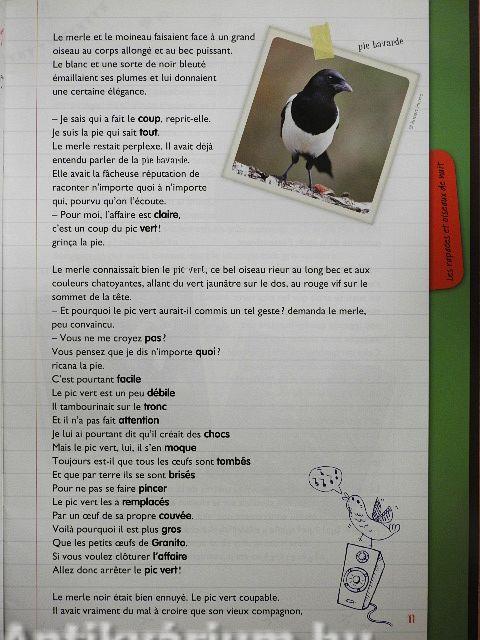 Le merle et le moineau faisaient face à un grand
oiseau au corps allongé et au bec puissant.
Le blanc et une sorte de noir bleuté
émaillaient ses plumes et lui donnaient
une certaine élégance.
pie bavarde
– Je sais qui a fait le coup, reprit-elle.
Je suis la pie qui sait tout.
Le merle restait perplexe. Il avait déjà
entendu parler de la pie bavarde.
Elle avait la fâcheuse réputation de
raconter n'importe quoi à n'importe
qui, pourvu qu'on l'écoute.
– Pour moi, l'affaire est claire,
c'est un coup du pic vert !
grinça la pie.
Les rapaces et oiseaux de nuit
Le merle connaissait bien le pic vert, ce bel oiseau rieur au long bec et aux
couleurs chatoyantes, allant du vert jaunâtre sur le dos, au rouge vif sur le
sommet de la tête.
– Et pourquoi le pic vert aurait-il commis un tel geste ? demanda le merle,
peu convaincu.
– Vous ne me croyez pas ?
Vous pensez que je dis n'importe quoi ?
ricana la pie.
C'est pourtant facile
Le pic vert est un peu débile
Il tambourinait sur le tronc
Et il n'a pas fait attention
Je lui ai pourtant dit qu'il créait des chocs
Mais le pic vert, lui, il s'en moque
Toujours est-il que tous les œufs sont tombés
Et que par terre ils se sont brisés
Pour ne pas se faire pincer
Le pic vert les a remplacés
Par un œuf de sa propre couvée.
Voilà pourquoi il est plus gros
Que les petits œufs de Granito.
Si vous voulez clôturer l'affaire
Allez donc arrêter le pic vert !
Le merle noir était bien ennuyé. Le pic vert coupable.
Il avait vraiment du mal à croire que son vieux compagnon,
11
Antikvarium.hu